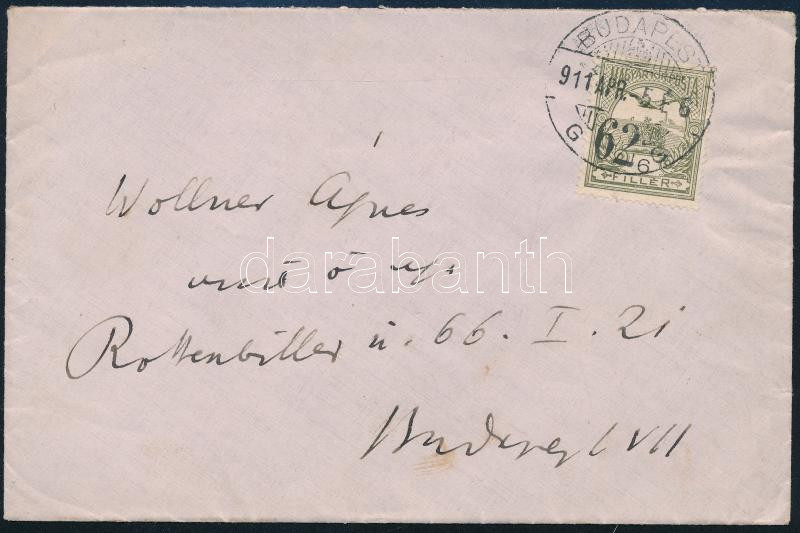 BUDAPEST
911 APR.-5 E 6
62
MAGYAR KIR. POSTA
6
FILLÉR
Wollner Ágnes
Rottenbiller u. 66. I. 21
Budapest VII
darabanth